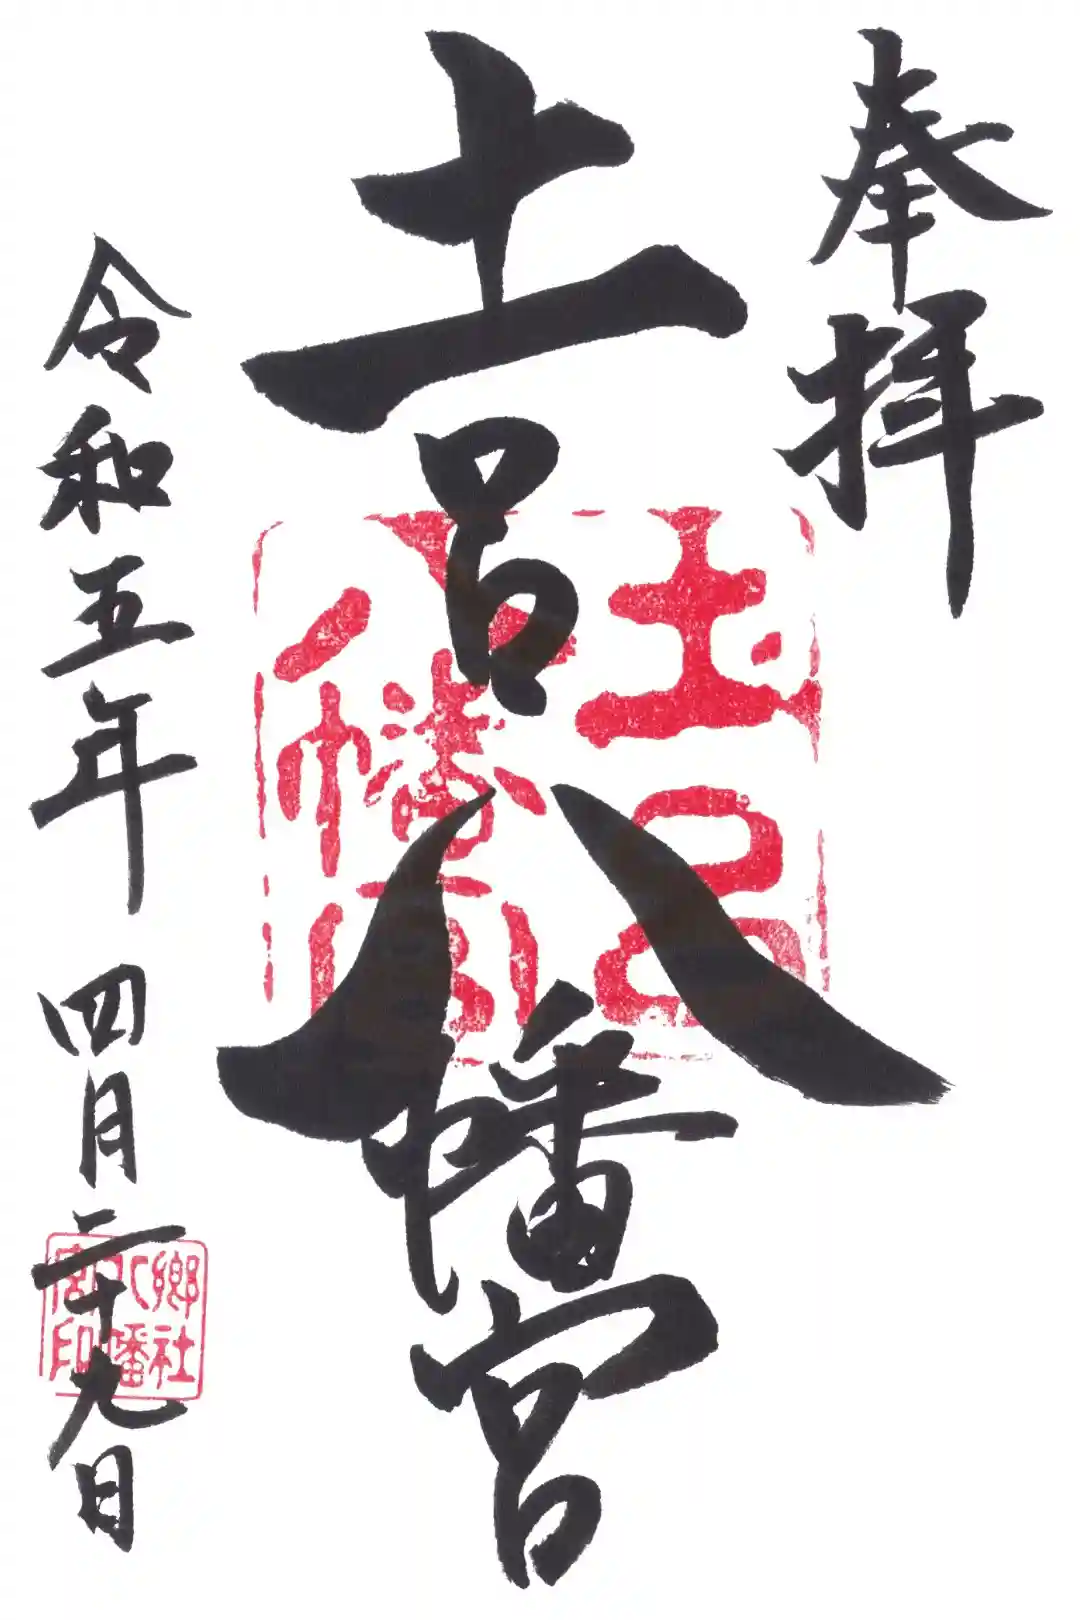 奉拝
土呂八幡宮
令和五年 四月二十九日
土呂
八幡宮
郷社
八幡
宮印